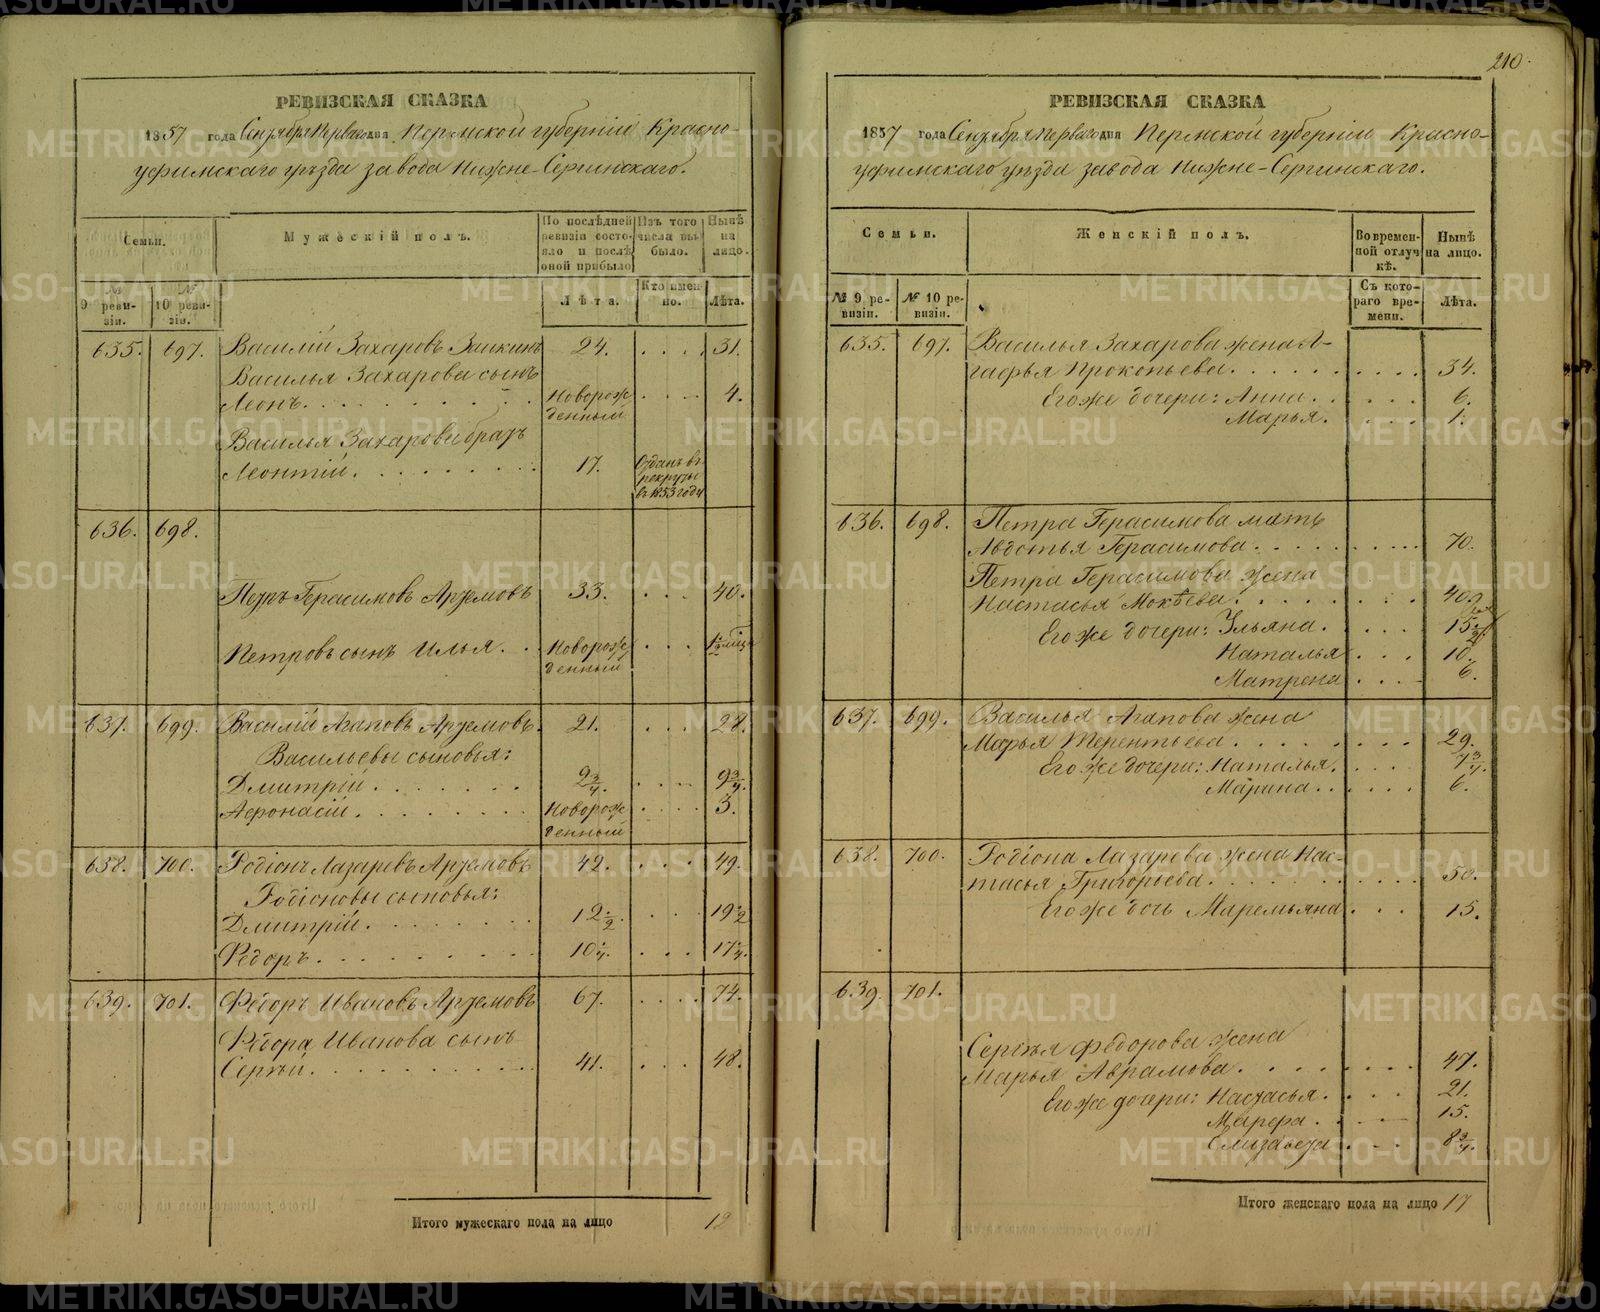 РЕВИЗСКАЯ СКАЗКА
1857 года Сентября Перваго дня Пермской губерніи Красно-
уфимскаго уѣзда завода Нижне-Сергинскаго.
Семьи.
Мужескій полъ.
По послѣдней ревизіи состояло и послѣ оной прибыло
Изъ того числа выбыло.
Нынѣ на лицо.
№ 9 ревизіи.
№ 10 ревизіи.
Лѣта.
Кто именно.
Лѣта.
635. 697. Василій Захаровъ Заикинъ 24. . . . . 31.
Василья Захарова сынъ
Леонъ. Новорожденный . . . . 4.
Василья Захарова братъ
Леонтій. 17. Отданъ въ рекруты въ 1853 году
636. 698.
Петръ Герасимовъ Артемовъ 33. . . . 40.
Петровъ сынъ Илья. Новорожденный . . .
637. 699. Василій Агаповъ Артемовъ. 21. . . . 28.
Васильевы сыновья:
Дмитрій. 2 3/4. . . . . 9 3/4.
Афонасій. Новорожденный . . . . 3.
638. 700. Родіонъ Лазаревъ Артемовъ 42. . . . . 49.
Родіоновы сыновья:
Дмитрій. 12 1/2. . . . 19 1/2
Ѳедоръ. 10 1/4. . . . 17 1/4.
639. 701. Ѳедоръ Ивановъ Артемовъ 67. . . . . 74.
Ѳедора Иванова сынъ
Сергѣй. 41. . . . 48.
Итого мужескаго пола на лицо 12
210.
РЕВИЗСКАЯ СКАЗКА
1857 года Сентября Перваго дня Пермской губерніи Красно-
уфимскаго уѣзда завода Нижне-Сергинскаго.
Семьи.
Женскій полъ.
Во временной отлучкѣ.
Нынѣ на лицо.
№ 9 ревизіи.
№ 10 ревизіи.
Съ котораго времени.
Лѣта.
635. 697. Василья Захарова жена А-
гафья Прокопьева. 34.
Его же дочери: Анна. 6.
Марья. 1.
636. 698. Петра Герасимова мать
Авдотья Герасимова. 70.
Петра Герасимова жена
Настасья Мокѣева. 40.
Его же дочери: Ульяна. 15 1/2.
Наталья 10.
Матрена 6.
637. 699. Василья Агапова жена
Марья Терентьева. 29.
Его же дочери: Наталья. 7 3/4.
Марина. 6.
638. 700. Родіона Лазарева жена Нас-
тасья Григорьева. 50.
Его же дочь Маремьяна 15.
639. 701.
Сергѣя Ѳедорова жена
Марья Аврамова. 47.
Его же дочери: Настасья. 21.
Марфа. 15.
Елизавета 8 3/4.
Итого женскаго пола на лицо 17
METRIKI.GASO-URAL.RU